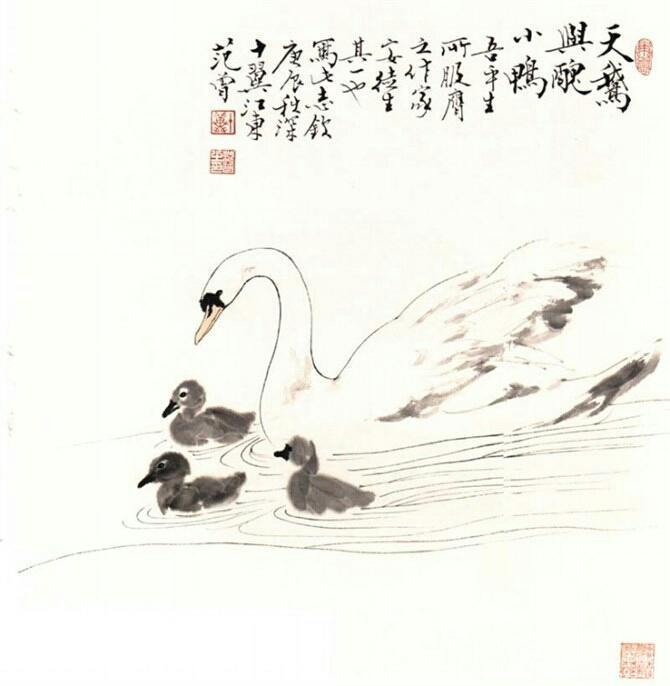 天鵝
與醜
小鴨
吾平生
所服膺
之作家
安徒生
其一也
寫此志欽
庚辰秋深
十翼江東
范曾